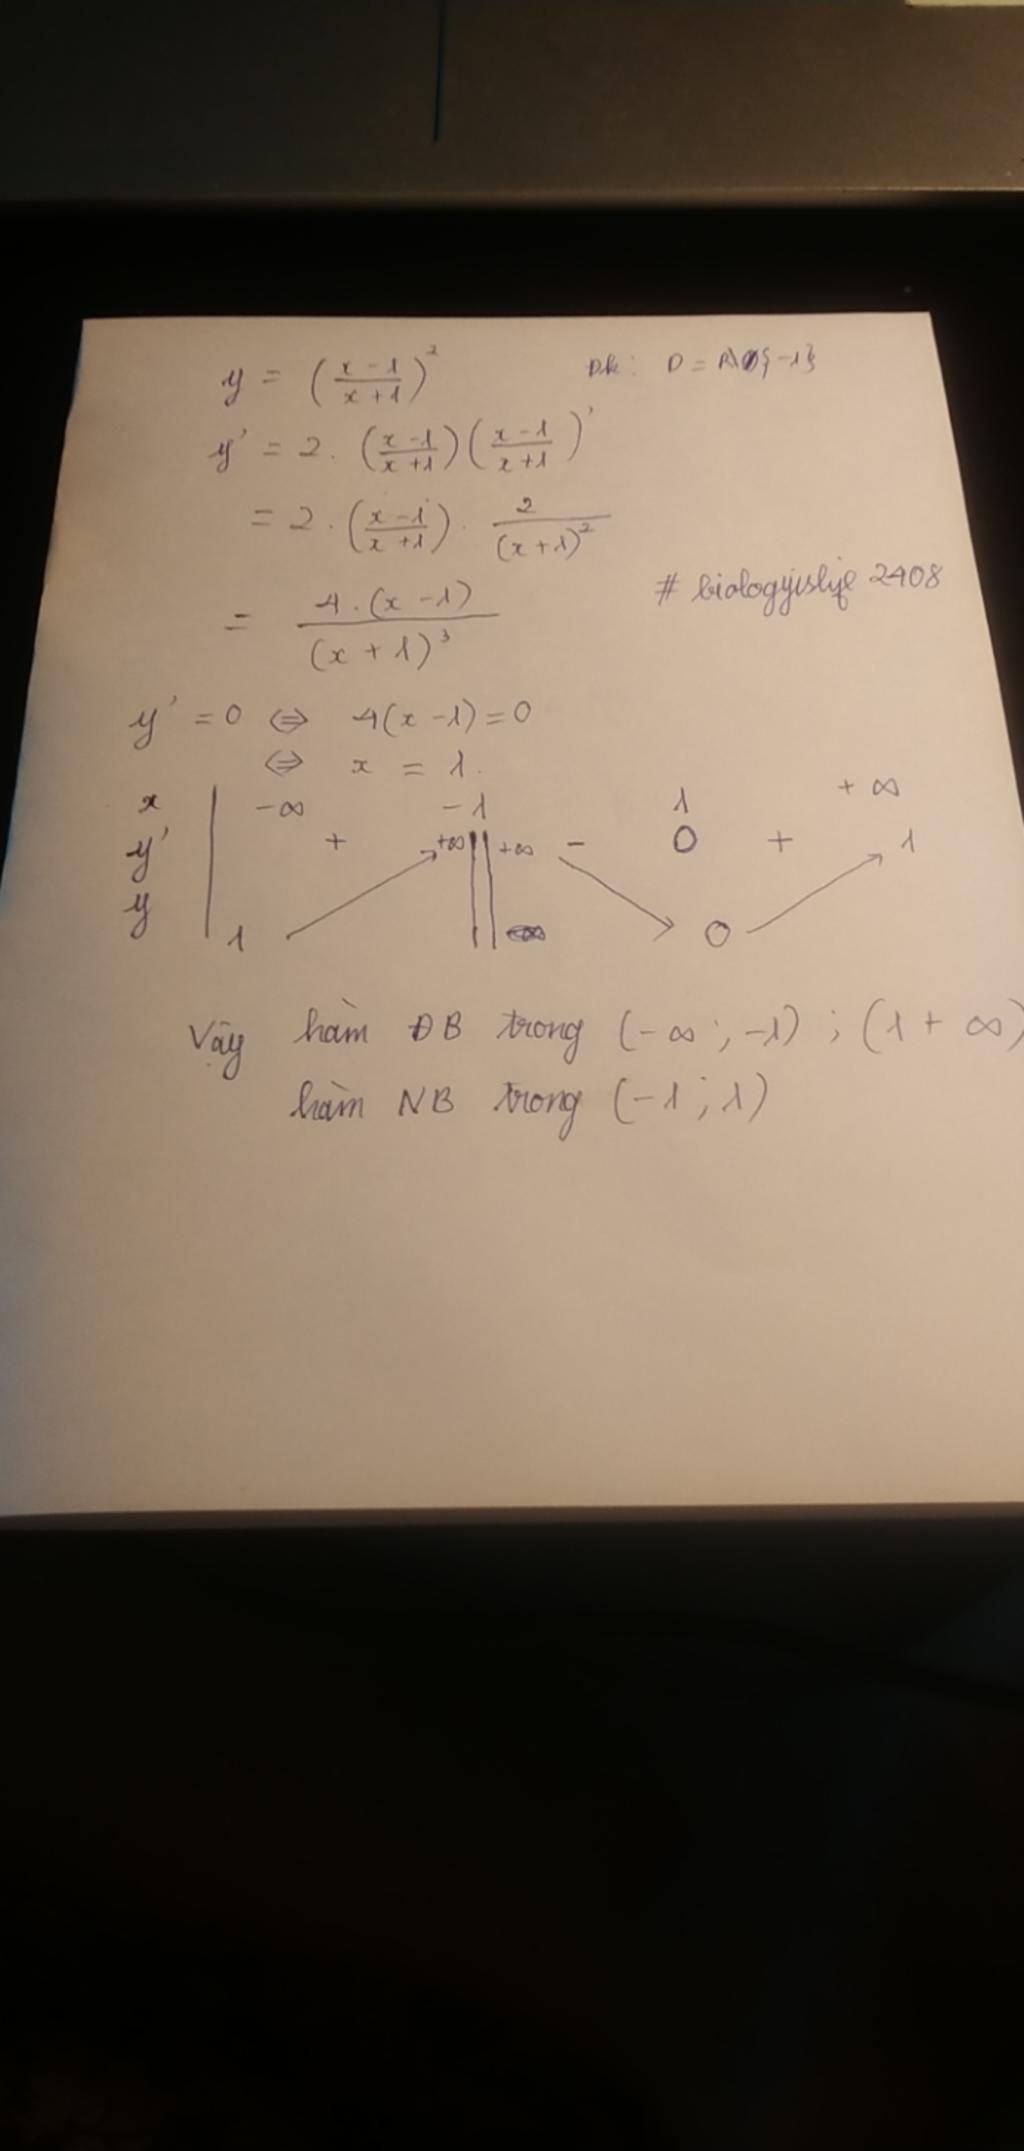 y = ((x - 1)/(x + 1))² Đk: D = R\{-1}
y' = 2 . ((x - 1)/(x + 1)) ((x - 1)/(x + 1))'
= 2 . ((x - 1)/(x + 1)) . 2/(x + 1)²
# biologyislife 2408
= 4 . (x - 1)/(x + 1)³
y' = 0 ⇔ 4(x - 1) = 0
⇔ x = 1.
x | -∞ -1 1 + ∞
y' | + || - 0 +
y | 1 ↗ +∞ || +∞ ↘ 0 ↗ 1
Vậy hàm ĐB trong (- ∞ ; -1) ; (1 + ∞)
hàm NB trong (-1 ; 1)